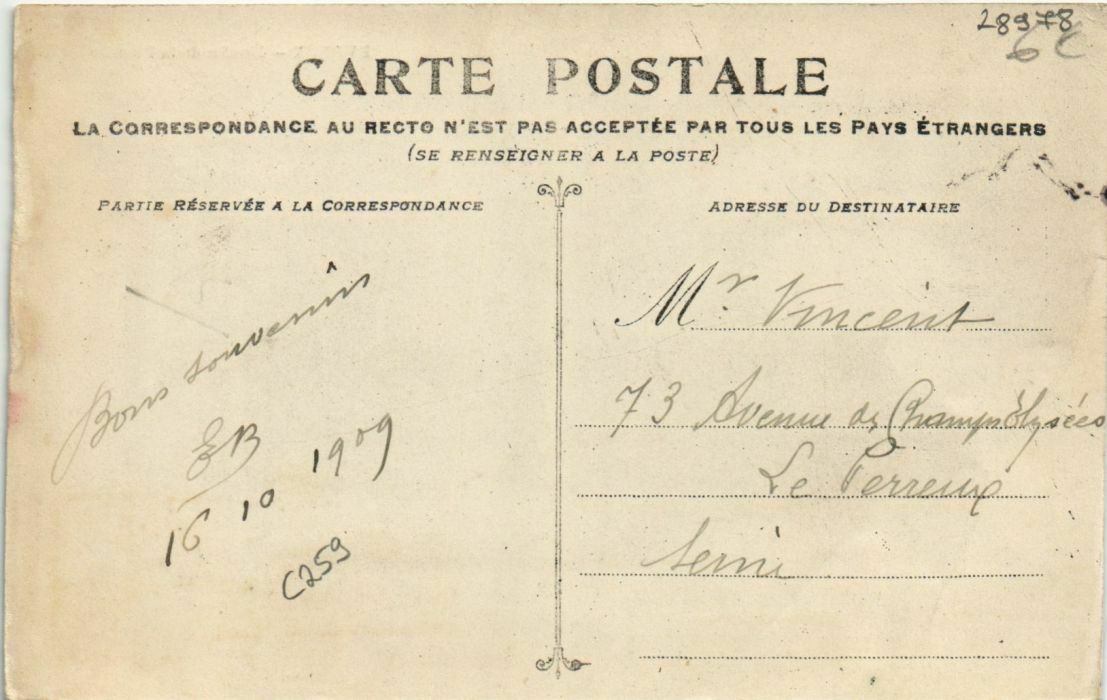 28978
6€
CARTE POSTALE
LA CORRESPONDANCE AU RECTO N'EST PAS ACCEPTÉE PAR TOUS LES PAYS ÉTRANGERS
(SE RENSEIGNER A LA POSTE)
PARTIE RÉSERVÉE A LA CORRESPONDANCE
Bons souvenirs
EB
16 10 1909
C259
ADRESSE DU DESTINATAIRE
Mr. Vincent
73 Avenue des Champs Elysées
Le Perreux
Seine